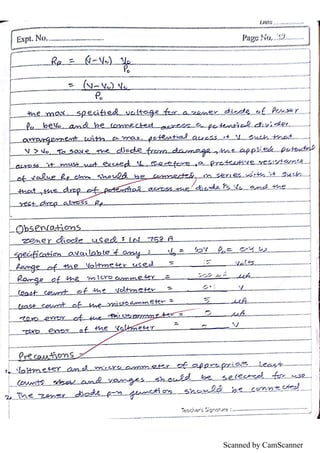 Expt. No.
Page No.
Rp = (V-Vo) Vo
Po
= (V-Vo) Vo
Po
the max. specified voltage for a zener diode of Power
Po be Vo and be connected across a potential divider
arrangement with a max. potential across it V such that
V > Vo. To save the diode from damage, the applied potential
across it must not exceed Vo. Therefore, a protective resistance
of value Rp ohm should be connected, in series with it such
that, the drop of potential across the diode is Vo and the
rest drop along Rp.
Observations
zener diode used : IN 752 A
specification available if any : Vo = 10V Po = 0.4 W
Range of the voltmeter used = 15 volts
Range of the micro ammeter = μA
least count of the voltmeter = V
least count of the microammeter = 5 μA
zero error of the microammeter = μA
zero error of the voltmeter = V
Precautions
1. Voltmeter and micro ammeter of appropriate least
counts and ranges should be selected for use
2. The zener diode p-n junction should be connected
Teacher's Signature :
Scanned by CamScanner